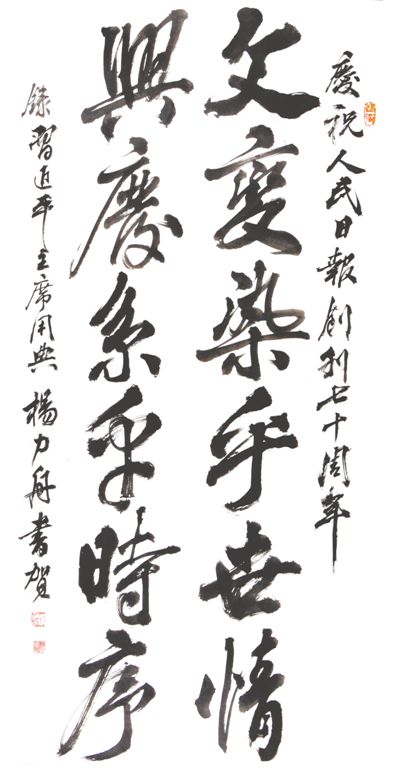 慶祝人民日報創刊七十周年
文變染乎世情
興廢系乎時序
錄習近平主席用典 楊力舟書賀